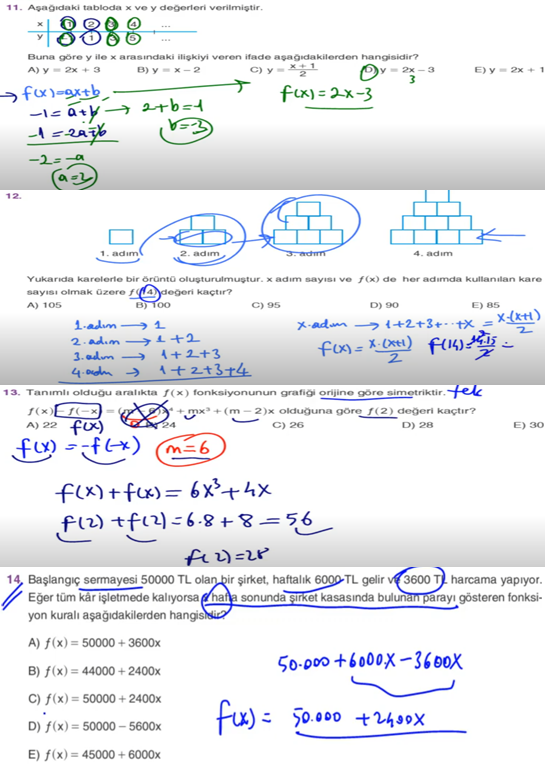 11. Aşağıdaki tabloda x ve y değerleri verilmiştir.
x 1 2 3 4 ...
y -1 1 3 5 ...
Buna göre y ile x arasındaki ilişkiyi veren ifade aşağıdakilerden hangisidir?
A) y = 2x + 3 B) y = x – 2 C) y = x + 1 / 2 D) y = 2x – 3 E) y = 2x + 1
→ f(x)=ax+b → f(x)=2x-3
-1 = a+b → 2+b=1
-1 = -2a+b b=-3
-2 = -a
a=2
12.
1. adım 2. adım 3. adım 4. adım
Yukarıda karelerle bir örüntü oluşturulmuştur. x adım sayısı ve f(x) de her adımda kullanılan kare
sayısı olmak üzere f(14) değeri kaçtır?
A) 105 B) 100 C) 95 D) 90 E) 85
1.adım → 1
2.adım → 1+2
3.adım → 1+2+3
4.adım → 1+2+3+4
x.adım → 1+2+3+...+x = x.(x+1) / 2
f(x) = x.(x+1) / 2 f(14) = 14.15 / 2 =
13. Tanımlı olduğu aralıkta f(x) fonksiyonunun grafiği orijine göre simetriktir. tek
f(x) – f(–x) = (m – 6)x⁴ + mx³ + (m – 2)x olduğuna göre f(2) değeri kaçtır?
A) 22 B) 24 C) 26 D) 28 E) 30
f(x)
f(x) = -f(-x) m=6
f(x)+f(x)= 6x³+4x
f(2)+f(2)=6.8+8=56
f(2)=28
14. Başlangıç sermayesi 50000 TL olan bir şirket, haftalık 6000 TL gelir ve 3600 TL harcama yapıyor.
Eğer tüm kâr işletmede kalıyorsa x hafta sonunda şirket kasasında bulunan parayı gösteren fonksi-
yon kuralı aşağıdakilerden hangisidir?
A) f(x) = 50000 + 3600x
B) f(x) = 44000 + 2400x
C) f(x) = 50000 + 2400x
D) f(x) = 50000 – 5600x
E) f(x) = 45000 + 6000x
50.000+6000x-3600x
f(x) = 50.000 +2400x